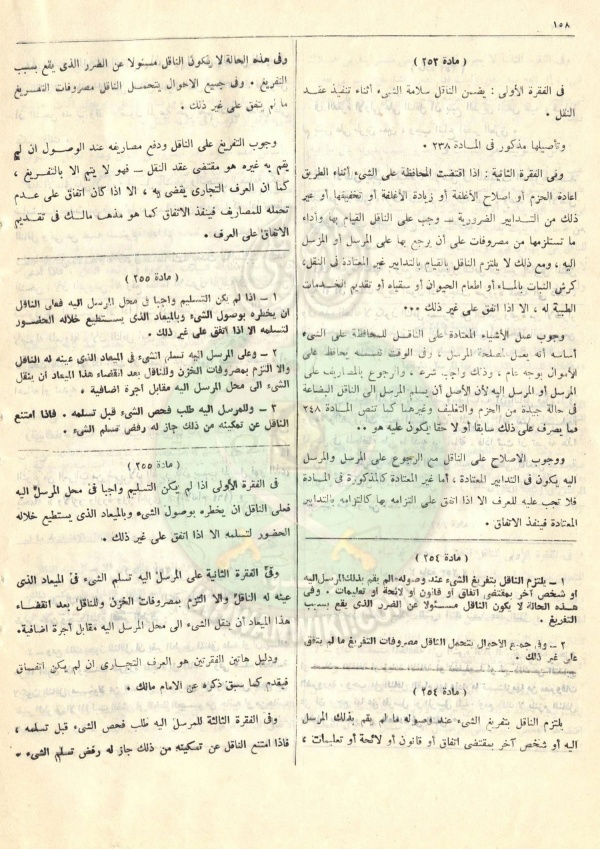 ١٥٨
( مادة ٢٥٣ )
فى الفقرة الأولى : يضمن الناقل سلامة الشىء أثناء تنفيذ عقد
النقل .
وتأصيلها مذكور فى المادة ٢٣٨ .
وفى الفقرة الثانية : اذا اقتضت المحافظة على الشىء أثناء الطريق
اعادة الحزم أو اصلاح الأغلفة أو زيادة الأغلفة أو تخفيفها أو غير
ذلك من التدابير الضرورية ــ وجب على الناقل القيام بها وأداء
ما تستلزمها من مصروفات على أن يرجع بها على المرسل أو المرسل
اليه ، ومع ذلك لا يلتزم الناقل بالقيام بالتدابير غير المعتادة فى النقل،
كرش النبات بالماء أو اطعام الحيوان أو سقياه أو تقديم الخدمات
الطبية له ، الا اذا اتفق على غير ذلك ..
وجوب عمل الأشياء المعتادة على الناقل للمحافظة على الشىء
أساسه أنه يعمل لمصلحة المرسل ، وفى الوقت نفسه يحافظ على
الأموال بوجه عام ، وذلك واجب شرعا ، والرجوع بالمصاريف على
المرسل أو المرسل اليه لأن الأصل أن يسلم المرسل الى الناقل البضاعة
فى حالة جيدة من الحزم والتغليف وغيرهما كما تنص المادة ٢٤٨
فما يصرف على ذلك سابقا أو لاحقا يكون عليه هو ..
ووجوب الاصلاح على الناقل مع الرجوع على المرسل والمرسل
اليه يكون فى التدابير المعتادة ، أما غير المعتادة كالمذكورة فى المادة
فلا تجب عليه للعرف الا اذا اتفق على التزامه بها كالتزامه بالتدابير
المعتادة فينفذ الاتفاق .
( مادة ٢٥٤ )
١ ــ يلتزم الناقل بتفريغ الشىء عند وصوله مالم يقم بذلك المرسل اليه
او شخص آخر بمقتضى اتفاق أو قانون او لائحة او تعليمات . وفى
هذه الحالة لا يكون الناقل مسئولا عن الضرر الذى يقع بسبب
التفريغ .
٢ ــ وفى جميع الأحوال يتحمل الناقل مصروفات التفريغ ما لم يتفق
على غير ذلك .
( مادة ٢٥٤ )
يلتزم الناقل بتفريغ الشىء عند وصوله ما لم يقم بذلك المرسل
اليه أو شخص آخر بمقتضى اتفاق أو قانون أو لائحة أو تعليمات ،
وفى هذه الحالة لا يكون الناقل مسئولا عن الضرر الذى يقع بسبب
التفريغ . وفى جميع الاحوال يتحمل الناقل مصروفات التفريغ
ما لم يتفق على غير ذلك .
وجوب التفريغ على الناقل ودفع مصاريفه عند الوصول ان لم
يقم به غيره هو مقتضى عقد النقل ــ فهو لا يتم الا بالتفريغ ،
كما ان العرف التجارى يقضى به ، الا اذا كان اتفاق على عدم
تحمله للمصاريف فينفذ الاتفاق كما هو مذهب مالك فى تقديم
الاتفاق على العرف .
( مادة ٢٥٥ )
١ ــ اذا لم يكن التسليم واجبا فى محل المرسل اليه فعلى الناقل
ان يخطره بوصول الشىء وبالميعاد الذى يستطيع خلاله الحضور
لتسلمه الا اذا اتفق على غير ذلك .
٢ ــ وعلى المرسل اليه تسلم الشىء فى الميعاد الذى عينه له الناقل
والا التزم بمصروفات الخزن وللناقل بعد انقضاء هذا الميعاد أن ينقل
الشىء الى محل المرسل اليه مقابل أجرة اضافية .
٣ ــ وللمرسل اليه طلب فحص الشىء قبل تسلمه . فاذا امتنع
الناقل عن تمكينه من ذلك جاز له رفض تسلم الشىء .
( مادة ٢٥٥ )
فى الفقرة الأولى اذا لم يكن التسليم واجبا فى محل المرسل اليه
فعلى الناقل ان يخطره بوصول الشىء وبالميعاد الذى يستطيع خلاله
الحضور لتسلمه الا اذا اتفق على غير ذلك .
وفى الفقرة الثانية على المرسل اليه تسلم الشىء فى الميعاد الذى
عينه له الناقل والا التزم بمصروفات الخزن وللناقل بعد انقضاء
هذا الميعاد أن ينقل الشىء الى محل المرسل اليه مقابل أجرة اضافية.
ودليل هاتين الفقرتين هو العرف التجارى ان لم يكن اتفاق
فيقدم كما سبق ذكره عن الامام مالك .
وفى الفقرة الثالثة للمرسل اليه طلب فحص الشىء قبل تسلمه ،
فاذا امتنع الناقل عن تمكينه من ذلك جاز له رفض تسلم الشىء .